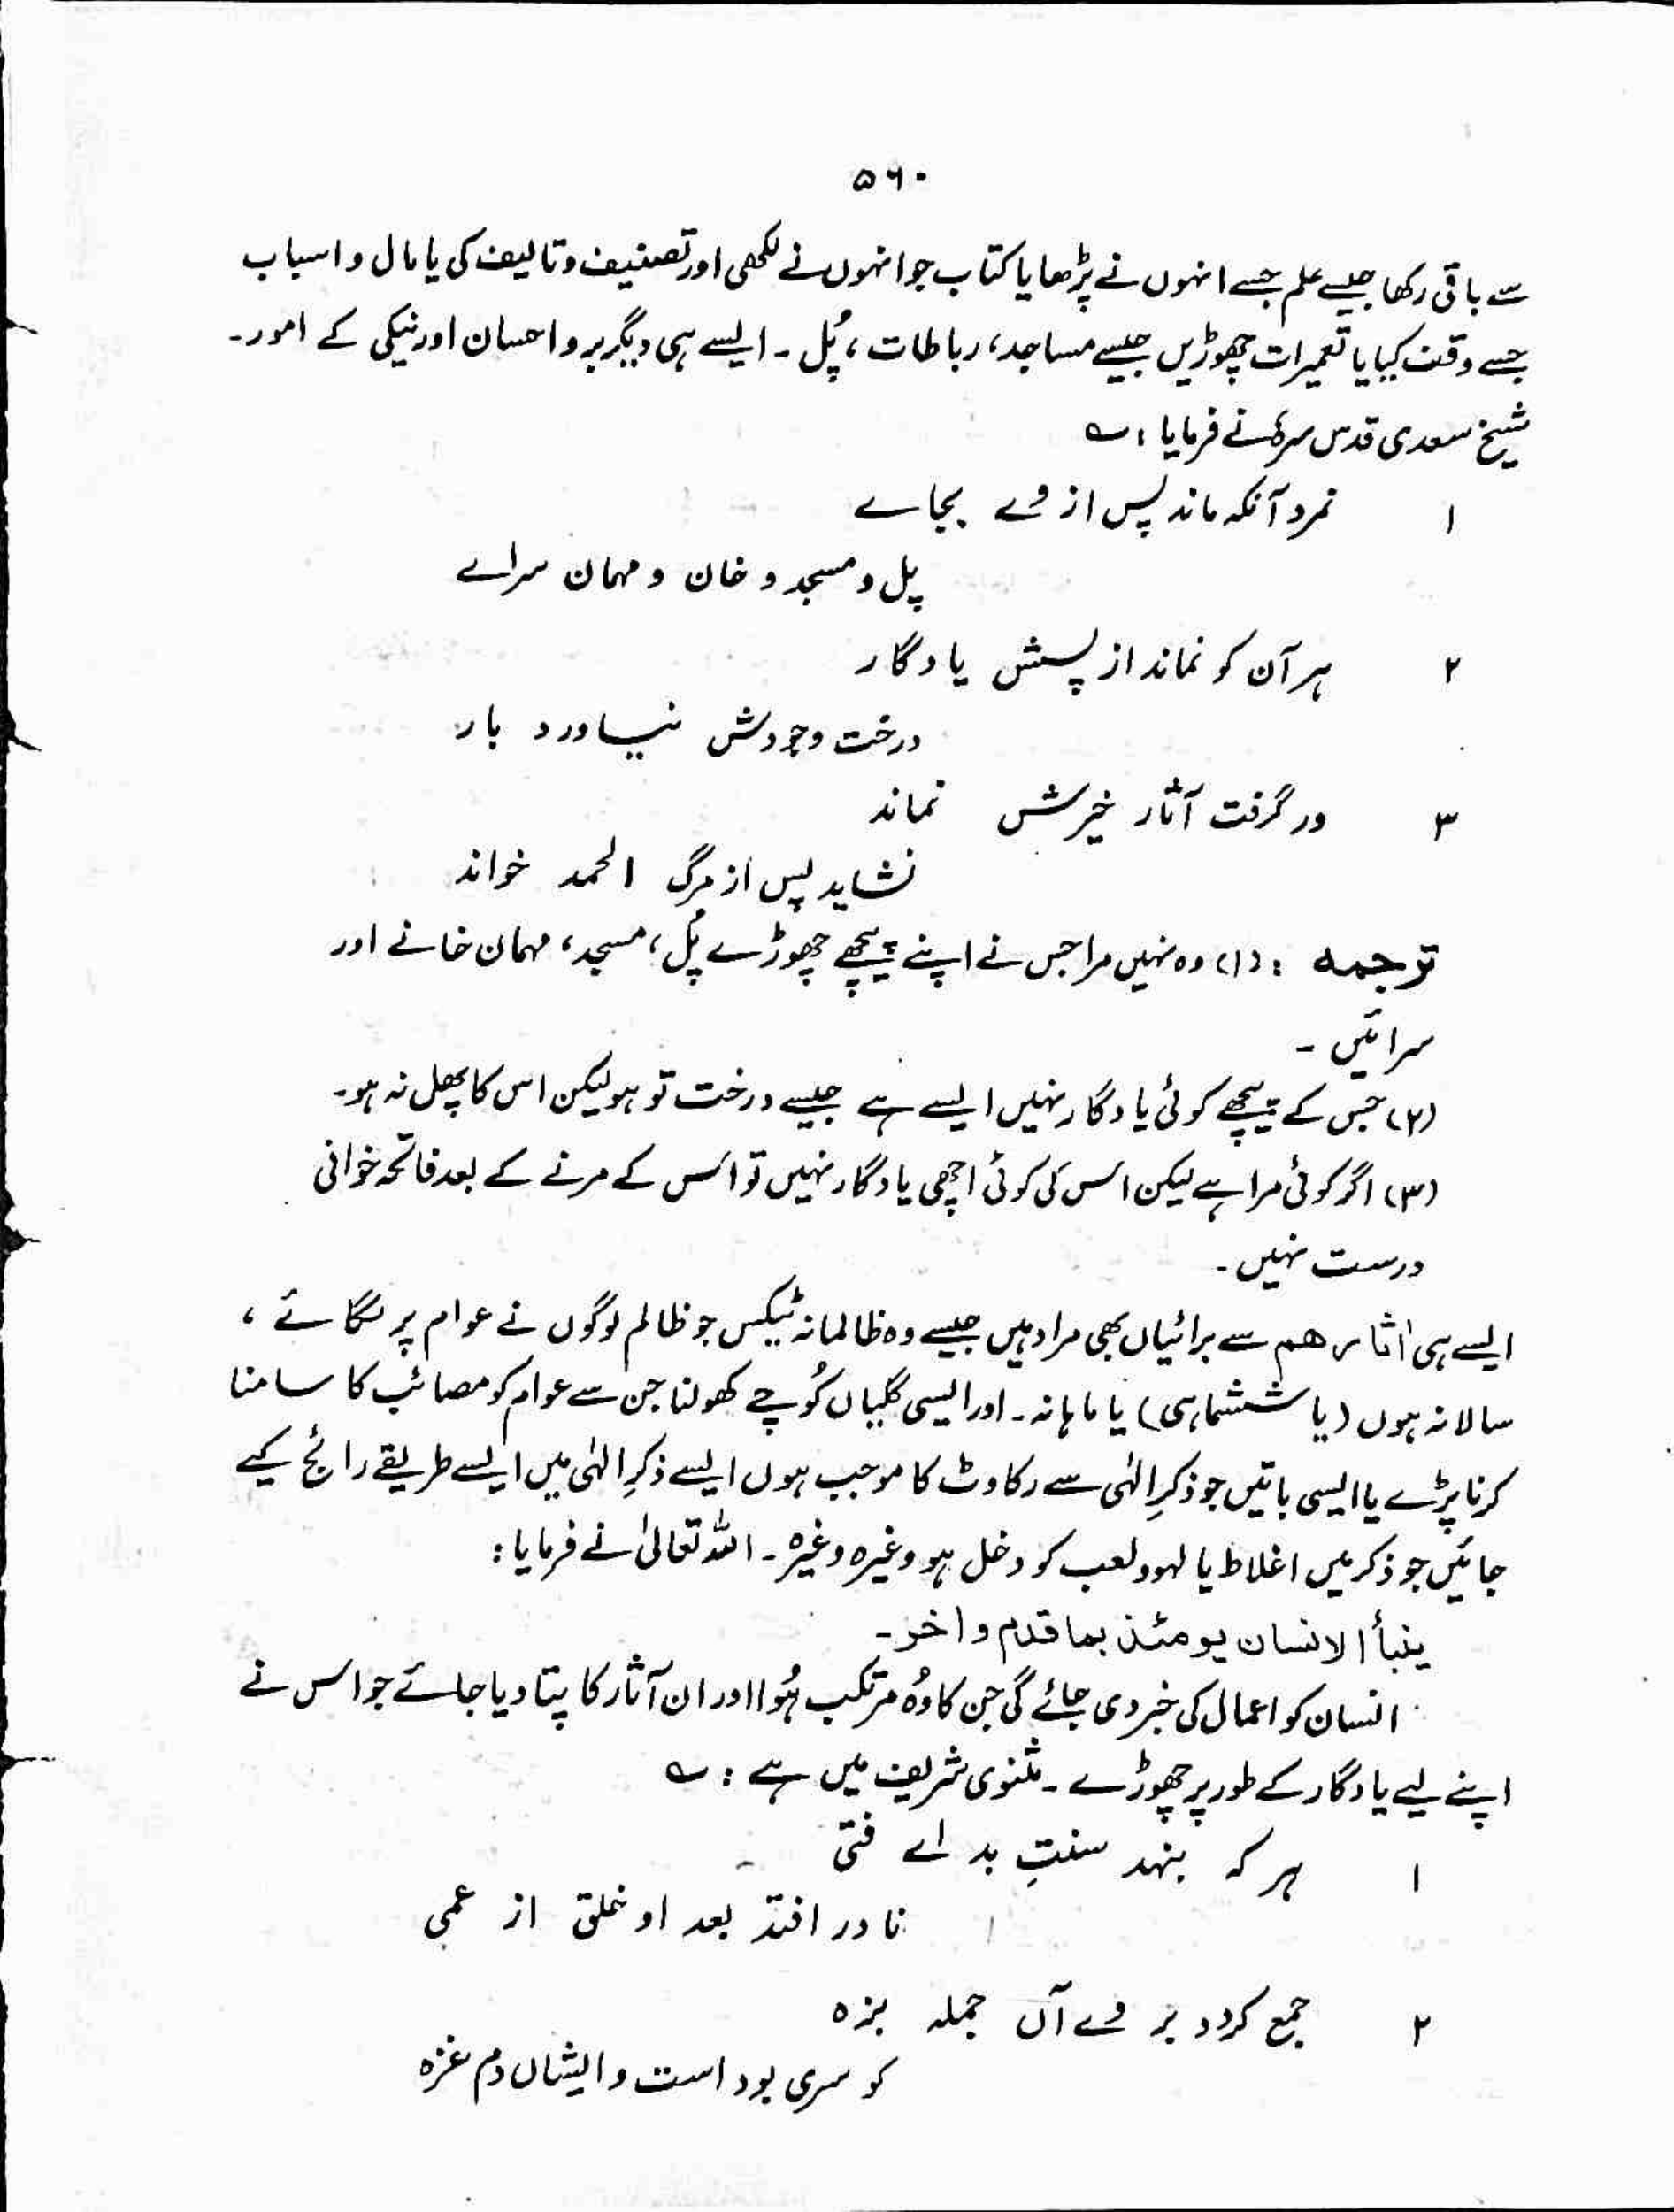 ۵۶۰
سے باقی رکھا جیسے علم جسے انہوں نے پڑھایا کتاب جو انہوں نے لکھی اور تصنیف و تالیف کی یا مال و اسباب
جسے وقف کیا یا تعمیرات چھوڑیں جیسے مساجد، رباطات، پُل۔ ایسے ہی دیگر بر و احسان اور نیکی کے امور۔
شیخ سعدی قدس سرہٗ نے فرمایا : ؎
۱ نمرد آنکہ ماند پس از وے بجاے
پل و مسجد و خان و مہمان سراے
۲ ہر آن کو نماند از پسش یادگار
درخت وجودش نیاورد بار
۳ ور گرفت آثار خیرش نماند
نشاید پس از مرگ الحمد خواند
ترجمہ : (۱) وہ نہیں مرا جس نے اپنے پیچھے چھوڑے پُل، مسجد، مہمان خانے اور
سرائیں ۔
(۲) جس کے پیچھے کوئی یادگار نہیں ایسے ہے جیسے درخت تو ہو لیکن اس کا پھل نہ ہو۔
(۳) اگر کوئی مرا ہے لیکن اس کی کوئی اچھی یادگار نہیں تو اس کے مرنے کے بعد فاتحہ خوانی
درست نہیں ۔
ایسے ہی اٰثارھم سے برائیاں بھی مراد ہیں جیسے وہ ظالمانہ ٹیکس جو ظالم لوگوں نے عوام پر لگائے ،
سالانہ ہوں (یا ششماہی) یا ماہانہ۔ اور ایسی گلیاں کُوچے کھولنا جن سے عوام کو مصائب کا سامنا
کرنا پڑے یا ایسی باتیں جو ذکرِ الٰہی سے رکاوٹ کا موجب ہوں ایسے ذکرِ الٰہی میں ایسے طریقے رائج کیے
جائیں جو ذکر میں اغلاط یا لہو و لعب کو دخل ہو وغیرہ وغیرہ ۔ اللہ تعالیٰ نے فرمایا :
ینبأ الانسان یومئذ بما قدم واخر ۔
انسان کو اعمال کی خبر دی جائے گی جن کا وُہ مرتکب ہُوا اور ان آثار کا پتا دیا جائے جو اس نے
اپنے لیے یادگار کے طور پر چھوڑے ۔ مثنوی شریف میں ہے : ؎
۱ ہر کہ بنہد سنتِ بد اے فتی
نا در افتد بعد او خلق از عمی
۲ جمع گردد بر وے آں جملہ بزہ
کو سری بود است و ایشاں دم غزہ